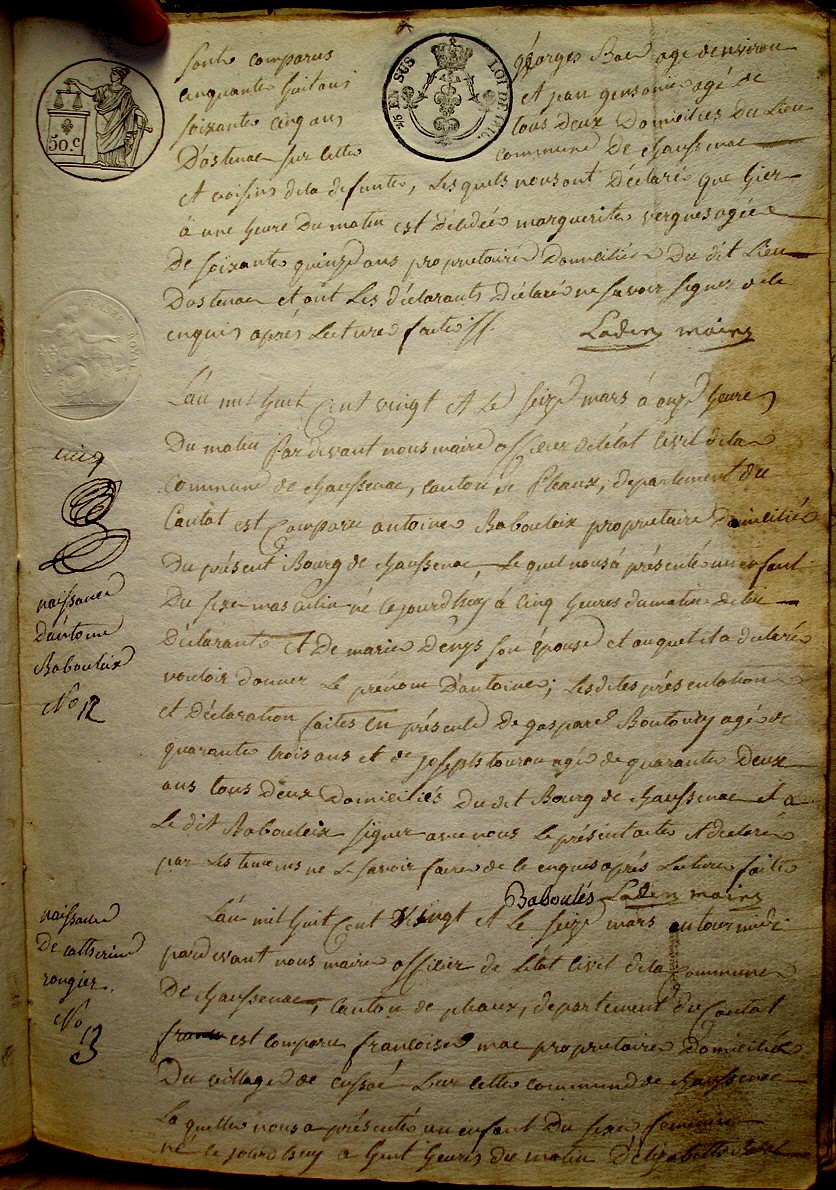 50.C
¼ EN SUS
LOI DE 1816
sont comparus georges Bac agé denviron
cinquante huit ans et jean gensonie agé de
soixante cinq ans tous deux Domiciliés Du Lieu
Dostenac sur cette commune De chaussenac
et voisins dela defunte, Lesquels nous ont Déclaré que hier
à une heure Du matin est Décédée marguerite vergnes agée
De soixante quinze ans propriétaire Domiciliée Du dit Lieu
Dostenac et ont Les Déclarants Déclaré ne savoir signer de ce
enquis après Lecture faite
maire
Lan mil huit Cent vingt et Le seize mars à onze heures
Du matin Pardevant nous maire officier delétat Civil dela
Commune de chaussenac, canton de Pleaux, departement du
Cantal est Comparu antoine Babouleix propriétaire Domicilié
Du présent Bourg de chaussenac, Lequel nous à présenté un enfant
Du sexe masculin né cejourdhuy à Cinq heures du matin de lui
Déclarant et De marie Denys son épouse et auquel il a déclaré
vouloir donner Le prénom D'antoine; Lesdites présentation
et Déclaration faites En présence De gaspard Boutoury agé de
quarante trois ans et de joseph tourou agé de quarante Deux
ans tous Deux Domiciliés Du dit Bourg de chaussenac et a
Le dit Babouleix signer avec nous Le présent acte et déclaré
par Les temoins ne Le savoir faire de ce enquis après Lecture faite
Baboulés maire
cinq
naissance
Dantoine
Babouleix
No 12
Lan mil huit Cent vingt et Le seize mars
pardevant nous maire officier de Létat Civil dela Commune
De chaussenac, Canton de pleaux, departement du Cantal
est Comparu francoise mac propriétaire Domiciliée
Du village de cussac sur cette commune de chaussenac
Laquelle nous a présenté un enfant Du sexe feminin
né ce jourdhuy a huit heures du matin D'élizabeth
naissance
De catherine
rongier
No 13